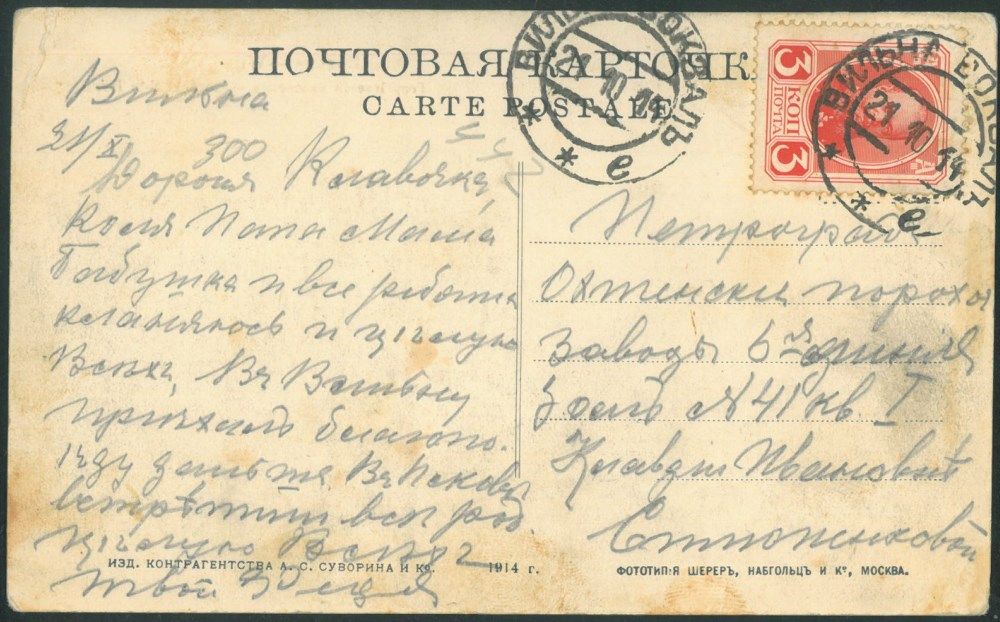 ПОЧТОВАЯ КАРТОЧК
CARTE POSTALE
ВИЛЬНА ВОКЗАЛЪ
21 10 14
е
ВИЛЬНА ВОКЗАЛЪ
21 10 14
е
3 КОП ПОЧТА 3
Вильна
21/X 300
Дорогая Клавочка,
Коля Папа Мама
Бабушка и все ребята
кланяюсь и цѣлую
Всѣхъ, Въ Вильну
приѣхалъ благопо.
ѣду дальше Въ Псковѣ
встрѣтили все род
цѣлую Всѣхъ
твой
Петроград
Охтенски порохо
Заводы 6я линия
домъ №41 кв. I
Клавдии Ивановнѣ
ИЗД. КОНТРАГЕНТСТВА А. С. СУВОРИНА И Ко. 1914 г.
ФОТОТИПІЯ ШЕРЕРЪ, НАБГОЛЬЦЪ И Ко, МОСКВА.